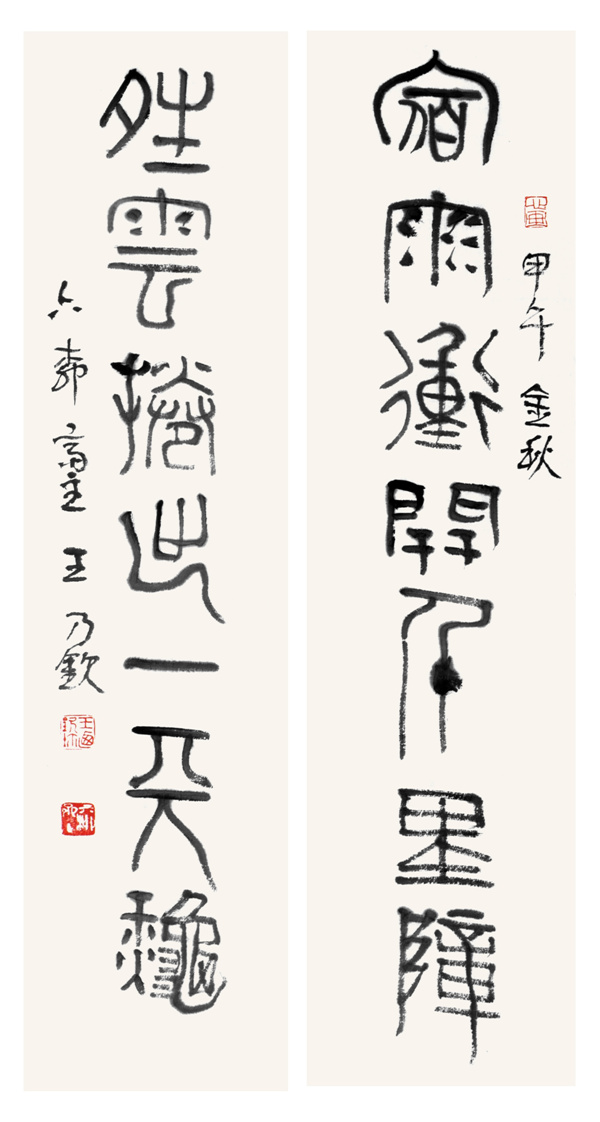 甲午金秋
宿雨衝開千里障
夝雲捲出一天龝
六 齋主王乃欽